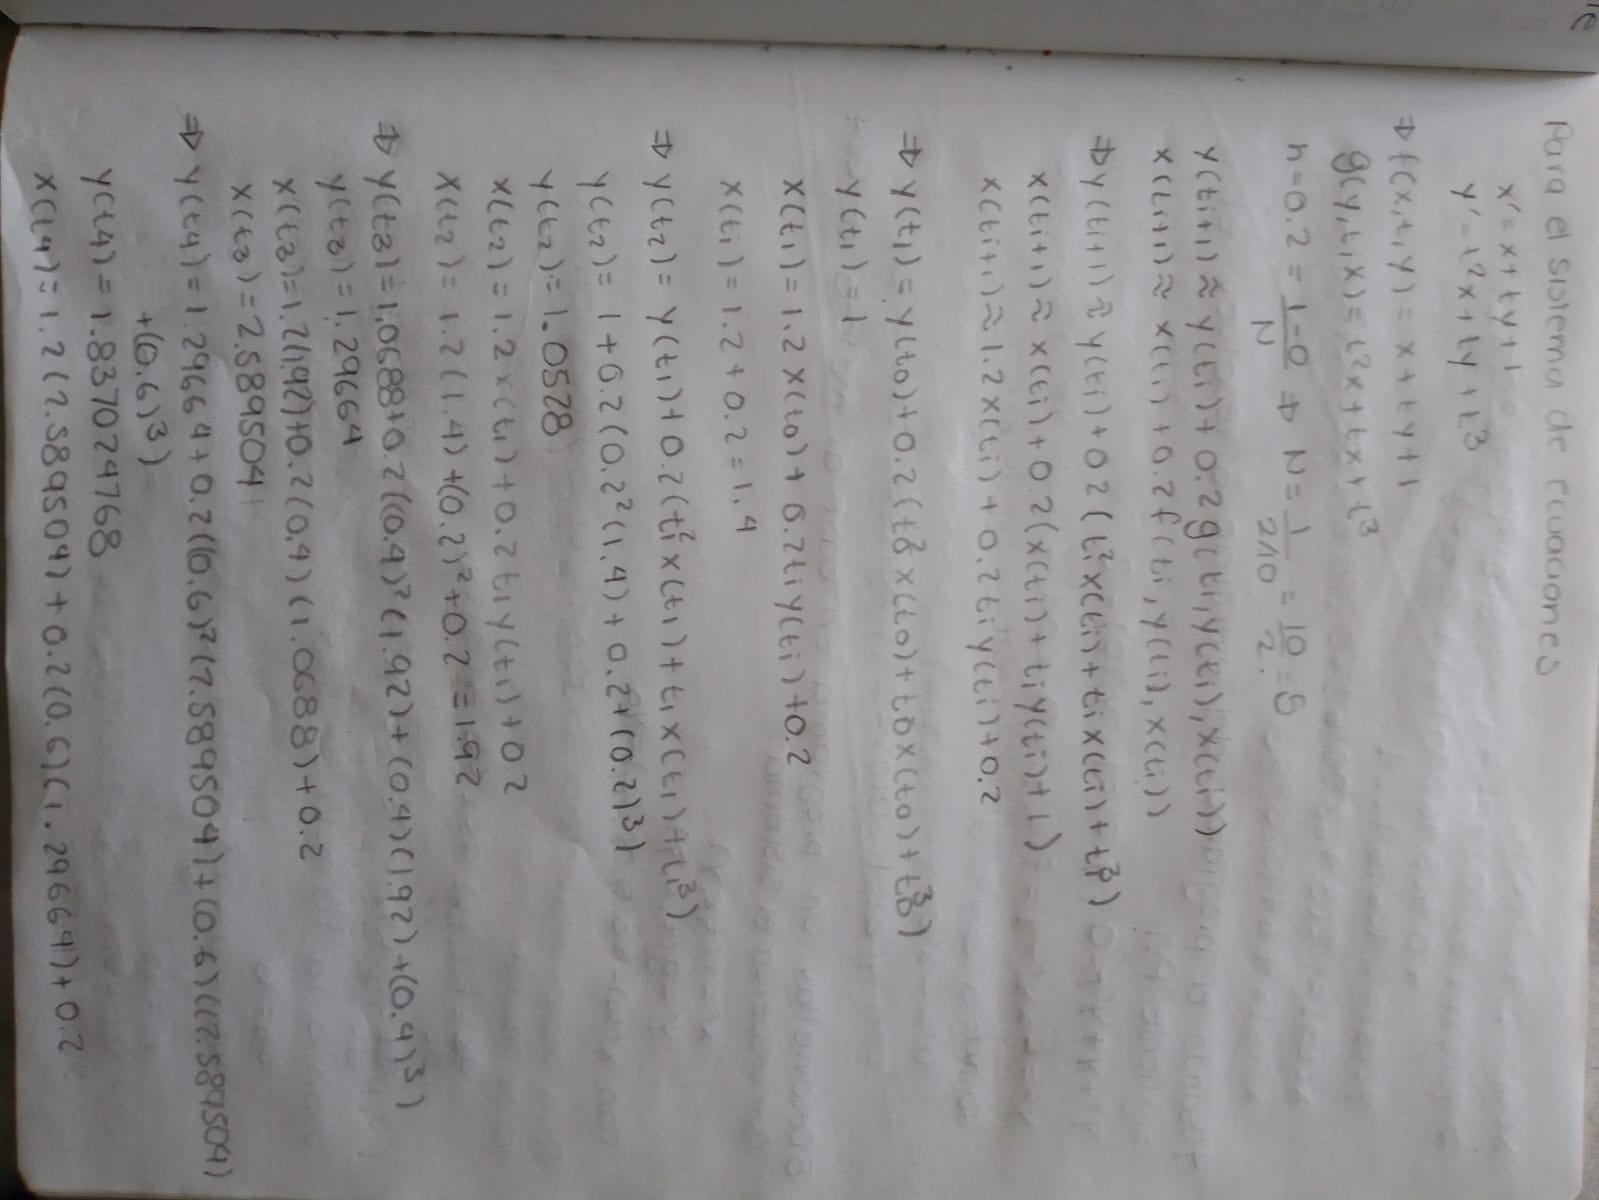 Para el sistema de ecuaciones
x' = x + ty + 1
y' = t²x + ty + t³
⇒ f(x,t,y) = x + ty + 1
g(y,t,x) = t²x + tx + t³
h = 0.2 = 1-0/N ⇒ N = 1/2/10 = 10/2 = 5
y(ti+1) ≈ y(ti) + 0.2g(ti, y(ti), x(ti))
x(ti+1) ≈ x(ti) + 0.2f(ti, y(ti), x(ti))
⇒ y(ti+1) ≈ y(ti) + 0.2(ti²x(ti) + ti x(ti) + ti³)
x(ti+1) ≈ x(ti) + 0.2(x(ti) + ti y(ti) + 1)
x(ti+1) ≈ 1.2x(ti) + 0.2 ti y(ti) + 0.2
⇒ y(t1) = y(t0) + 0.2(t0² x(t0) + t0 x(t0) + t0³)
y(t1) = 1
x(t1) = 1.2 x(t0) + 0.2 ti y(ti) + 0.2
x(t1) = 1.2 + 0.2 = 1.4
⇒ y(t2) = y(t1) + 0.2(t1² x(t1) + t1 x(t1) + t1³)
y(t2) = 1 + 0.2(0.2²(1.4) + 0.2 + (0.2)³)
y(t2) = 1.0528
x(t2) = 1.2 x(t1) + 0.2 t1 y(t1) + 0.2
x(t2) = 1.2(1.4) + (0.2)² + 0.2 = 1.92
⇒ y(t3) = 1.0688 + 0.2((0.4)²(1.92) + (0.4)(1.92) + (0.4)³)
y(t3) = 1.29664
x(t3) = 1.2(1.92) + 0.2(0.4)(1.0688) + 0.2
x(t3) = 2.589504
⇒ y(t4) = 1.29664 + 0.2((0.6)²(2.589504) + (0.6)(2.589504)
+ (0.6)³)
y(t4) = 1.8370294768
x(t4) = 1.2(2.589504) + 0.2(0.6)(1.29664) + 0.2